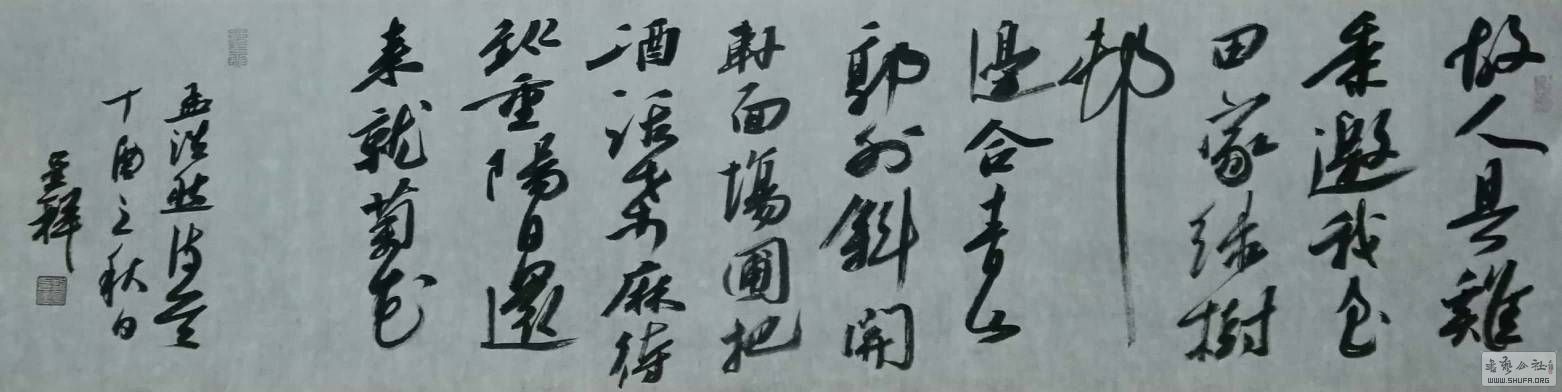 故人具雞
黍邀我至
田家綠樹
邨
邊合青山
郭外斜開
軒面場圃把
酒話桑麻待
到重陽日還
來就菊花
孟浩然詩一首
丁酉之秋日
书艺公社
WWW.SHUFA.ORG